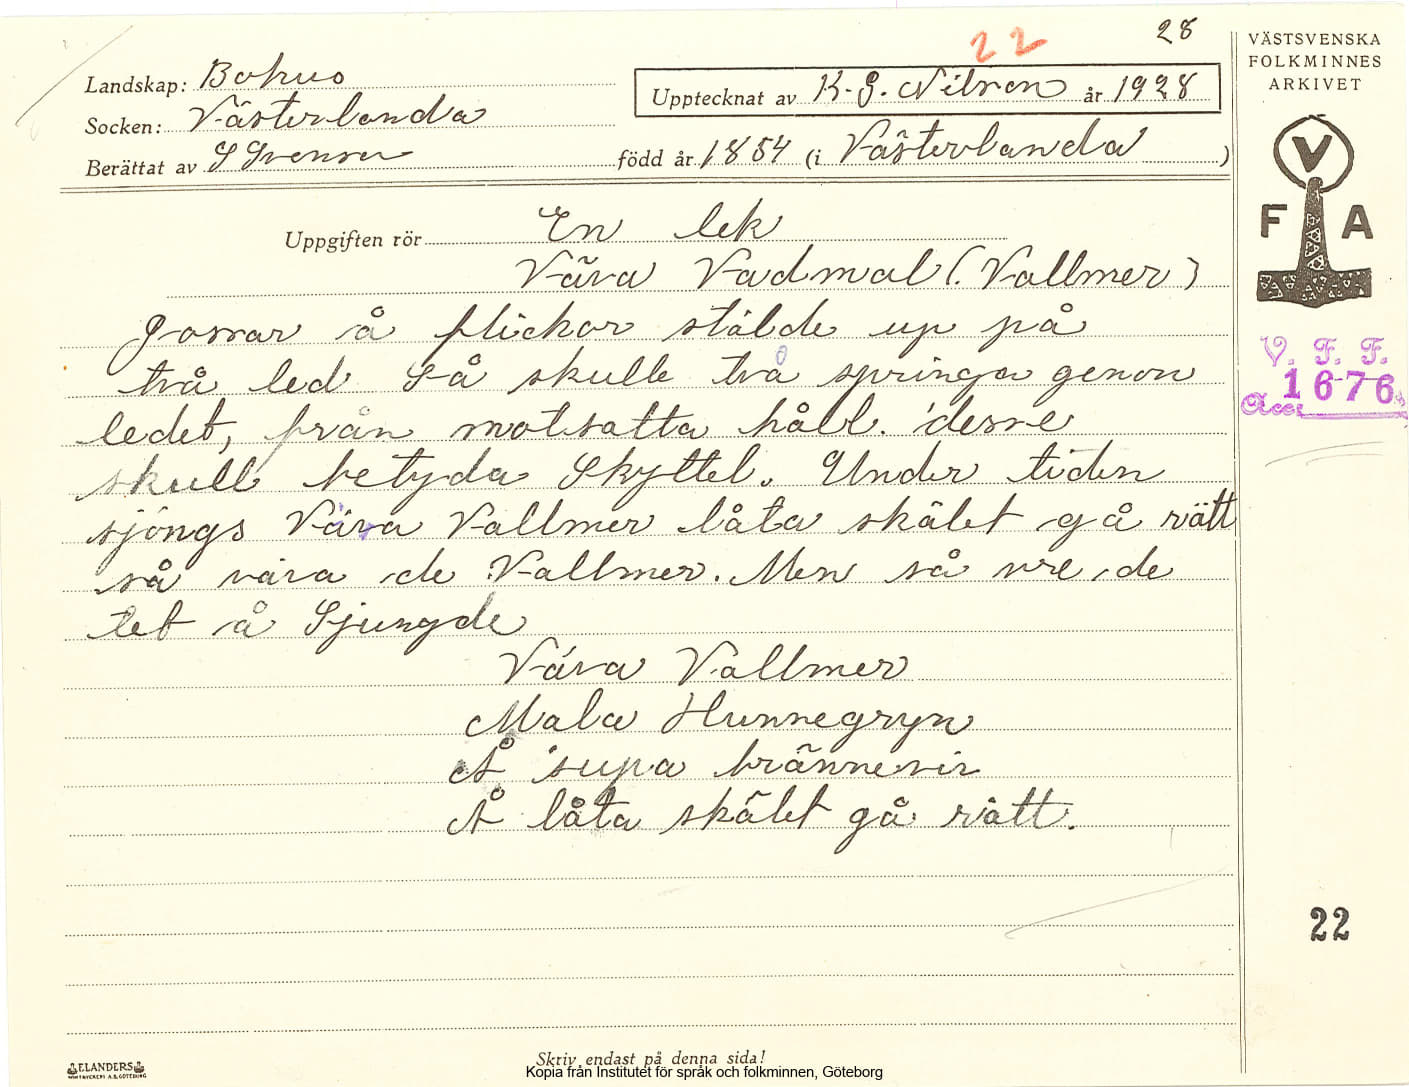 22
28
VÄSTSVENSKA
FOLKMINNES
ARKIVET
Landskap: Bohus
Upptecknat av K. G. Nilson år 1928
Socken: Västerlanda
Berättat av S Svenson född år 1854 (i Västerlanda)
V
F A
Uppgiften rör En lek
Väva Vadmal (Vallmer)
Gossar å flickor stälde up på
två led Så skulle två springa genon
ledet, från motsatta håll. desse
skull betyda Skyttel. Under tiden
sjöngs Väva Vallmer låta skälet gå rätt
så väva de Vallmer. Men så vre de
tet å Sjungde
Väva Vallmer
Mala Hunnegryn
Å supa brännevin
Å låta skälet gå rätt.
V. F. F.
Acc. 1676
22
ELANDERS
BOKTRYCKERI A.B. GÖTEBORG
Skriv endast på denna sida!
Kopia från Institutet för språk och folkminnen, Göteborg